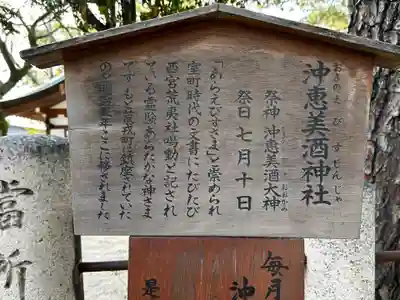 沖恵美酒神社
おきのえびすじんじゃ
祭神 沖恵美酒大神
おおかみ
祭日 七月十日
「あらえびすさま」と崇められ
室町時代の文書にたびたび
西宮荒夷社鳴動と記され
ている霊験あらたかな神さま
です もと荒戎町に鎮座されていた
のを明治五年ここに移されました
毎月
沖
是
當所